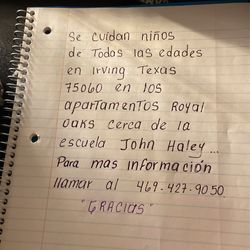 Se cuidan niños
de Todos las edades
en Irving Texas
75060 en los
apartamentos Royal
Oaks cerca de la
escuela John Haley...
Para mas información
llamar al 469-427-9050
"GRACIAS"